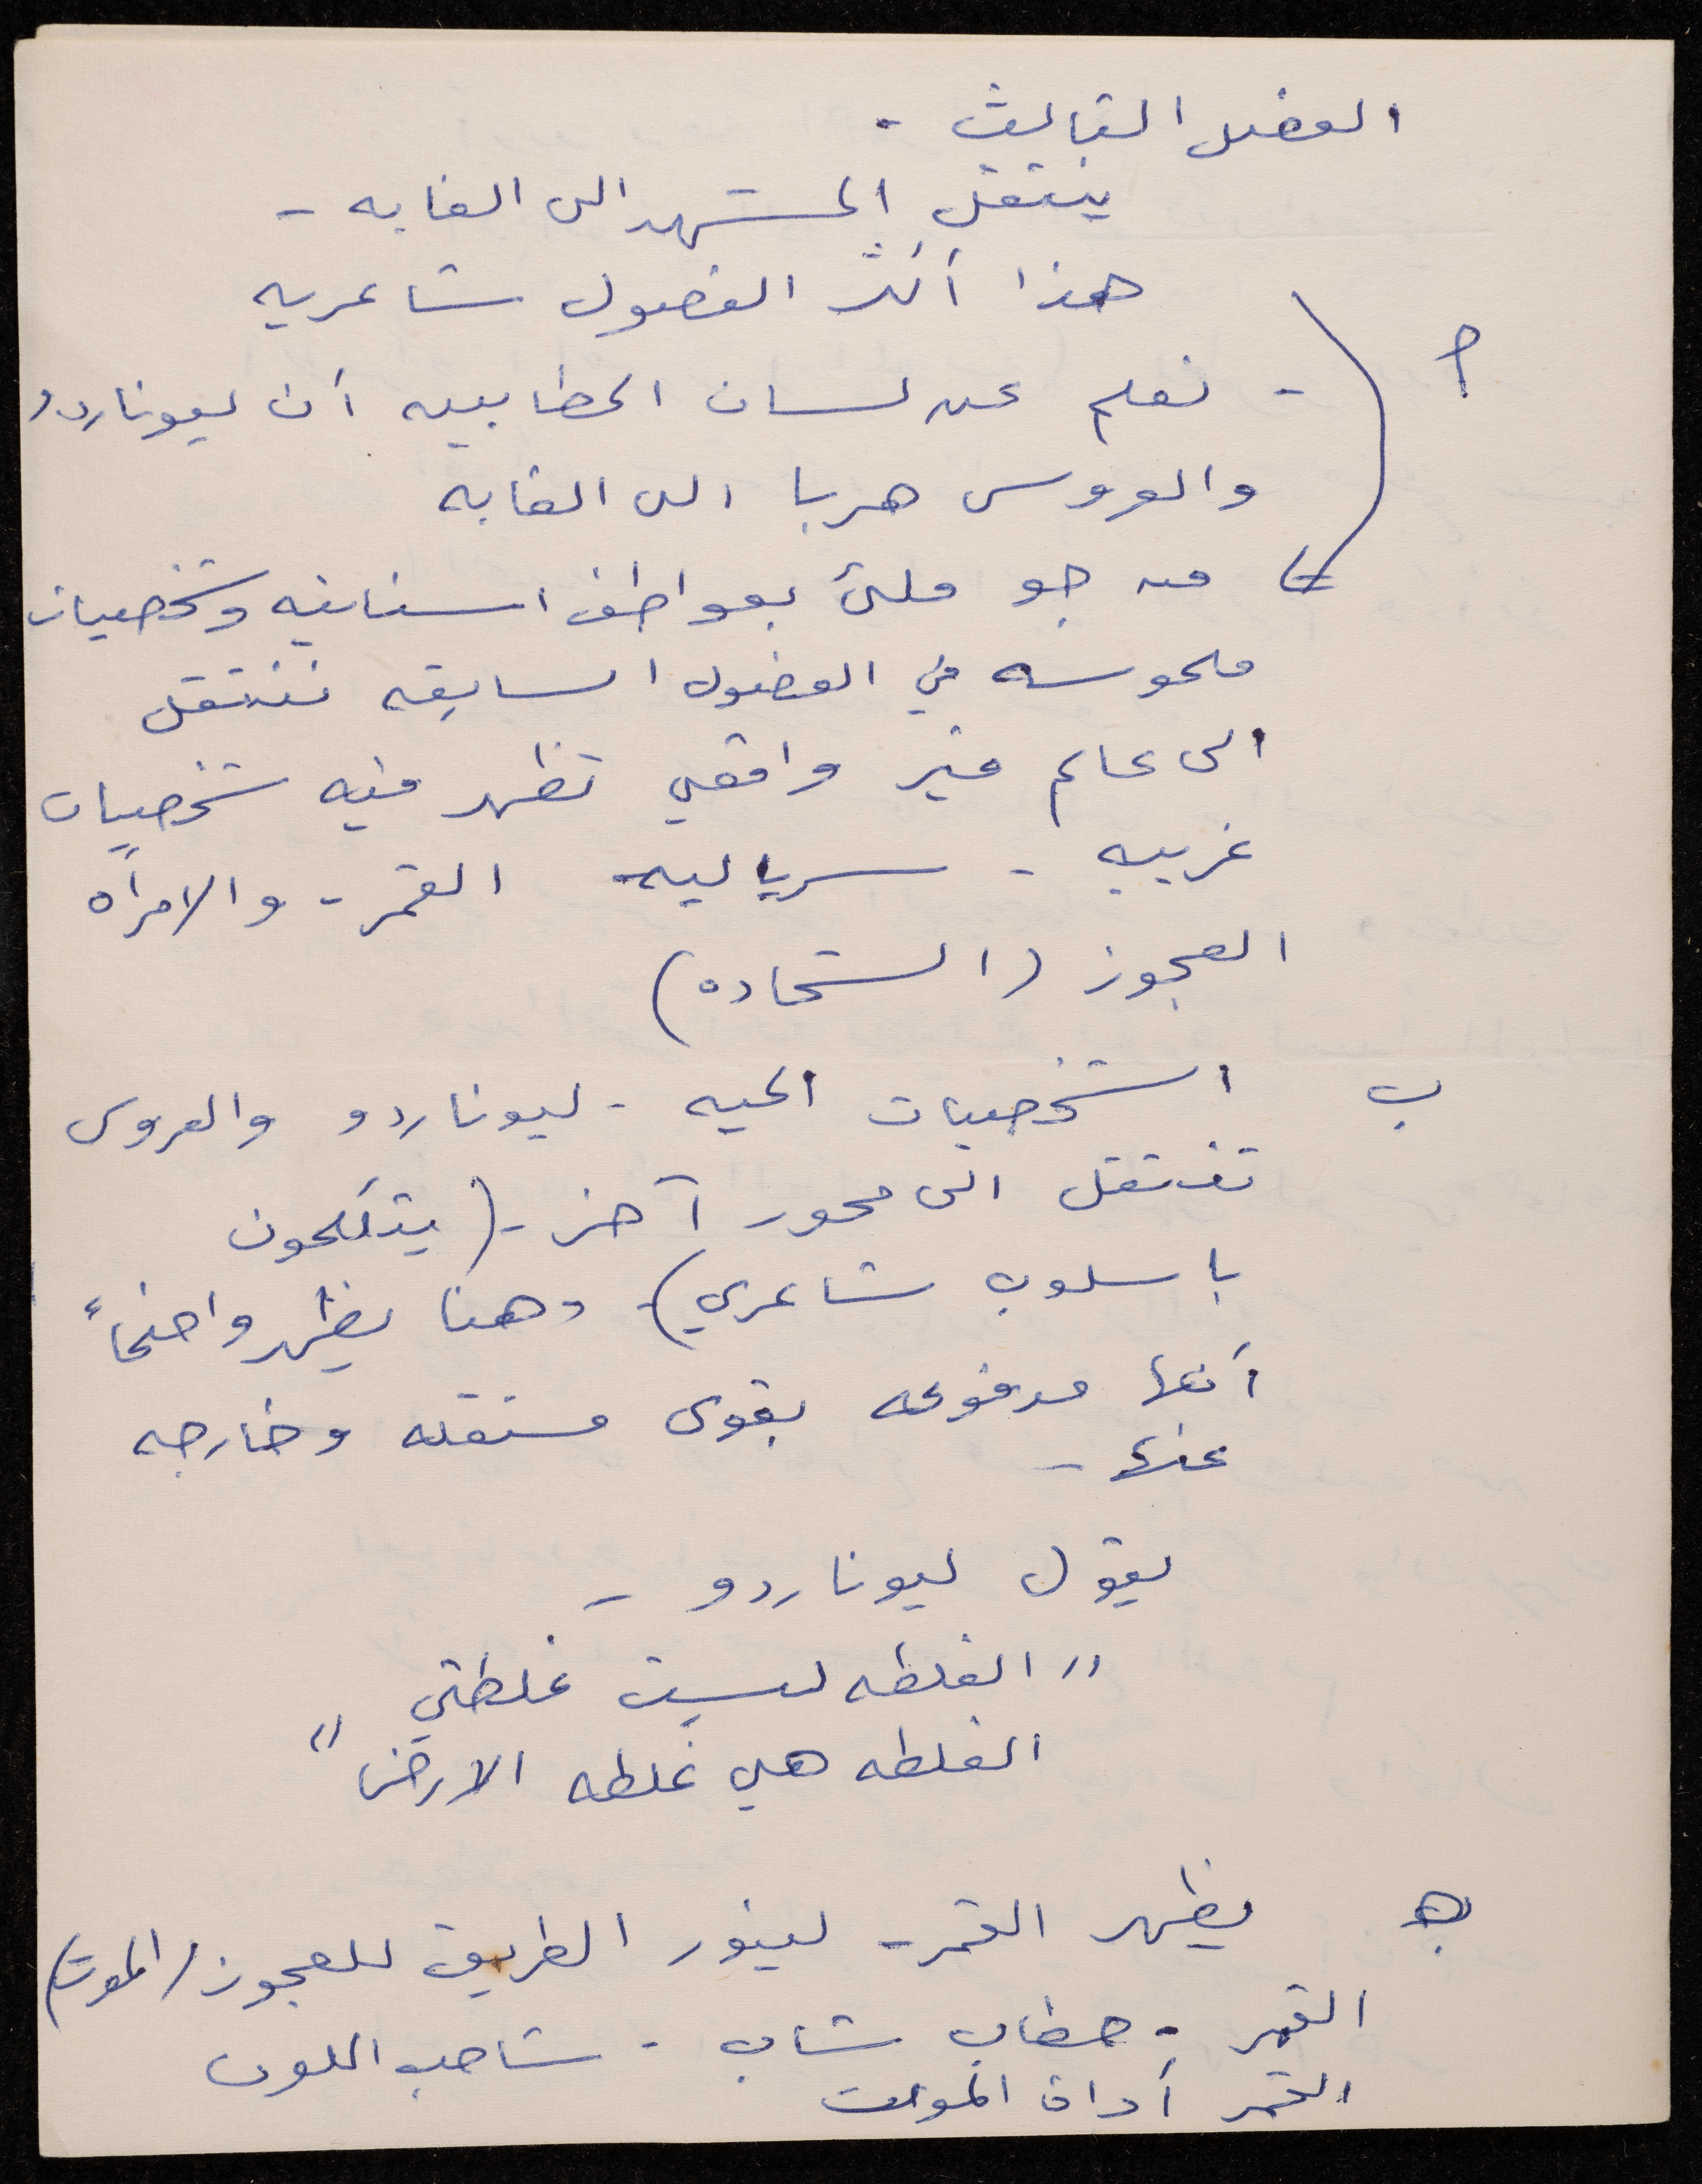 الفصل الثالث -
ينتقل المشهد الى الغابه -
هذا أكثر الفصول شاعريه
أ - نعلم عن لسان الحطابين أن ليوناردو
والعروس هربا الى الغابه
من جو ملئ بعواطف انسانيه وشخصيات
ملموسه في الفصول السابقه ننتقل
الى عالم غير واقعي تظهر فيه شخصيات
غريبه - سرياليه القمر - والامرأه
العجوز (الشحاده)
ب الشخصيات الحيه - ليوناردو والعروس
تنتقل الى محور آخر - (يتكلمون
باسلوب شاعري) - وهنا يظهر واضحاً
أنها مدفوعه بقوى مستقله وخارجه
عنها -
يقول ليوناردو -
" الغلطه ليست غلطتي
الغلطه هي غلطه الارض "
يظهر القمر - لينور الطريق للعجوز (الموت)
القمر - حطاب شاب - شاحب اللون
القمر أداة الموت